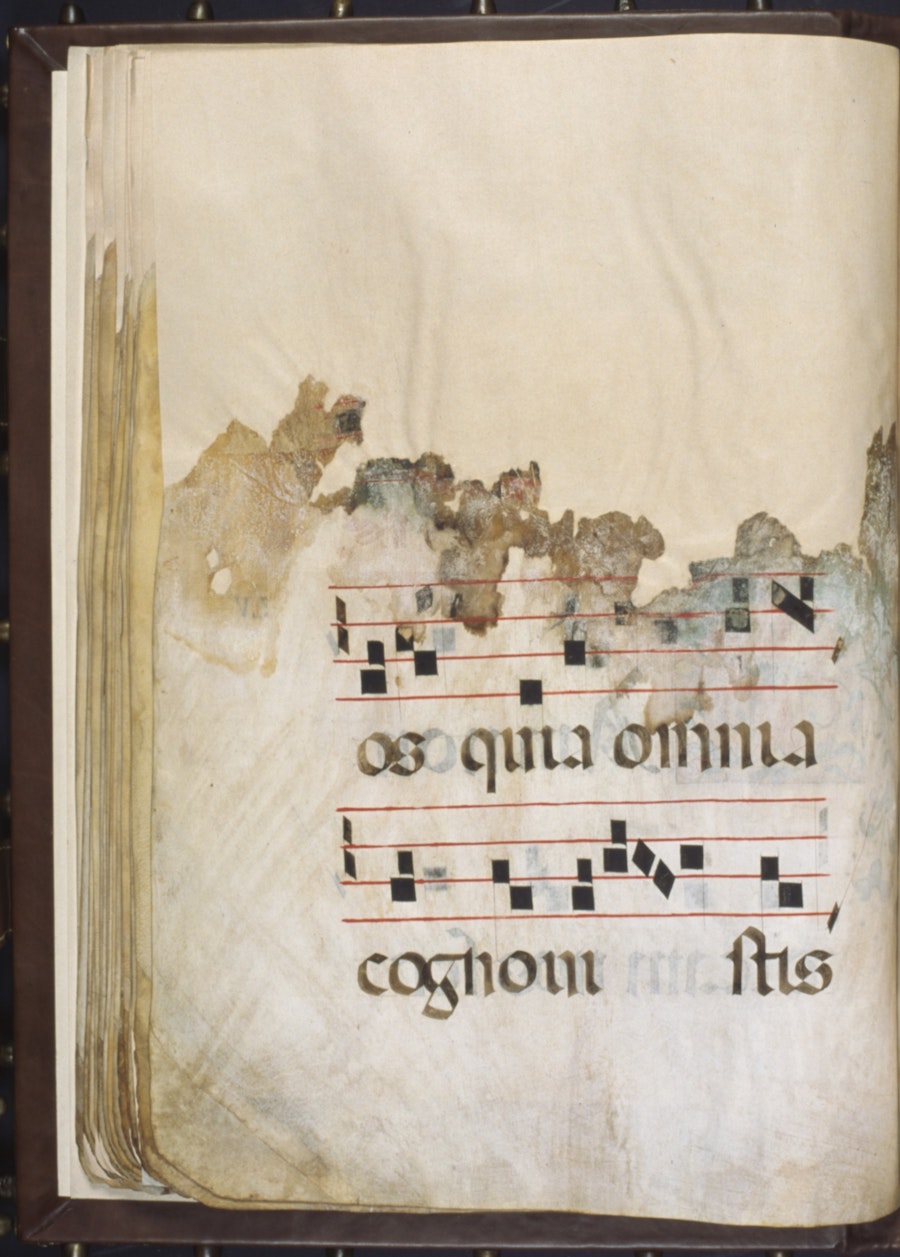 os quia omnia
cognoui stis